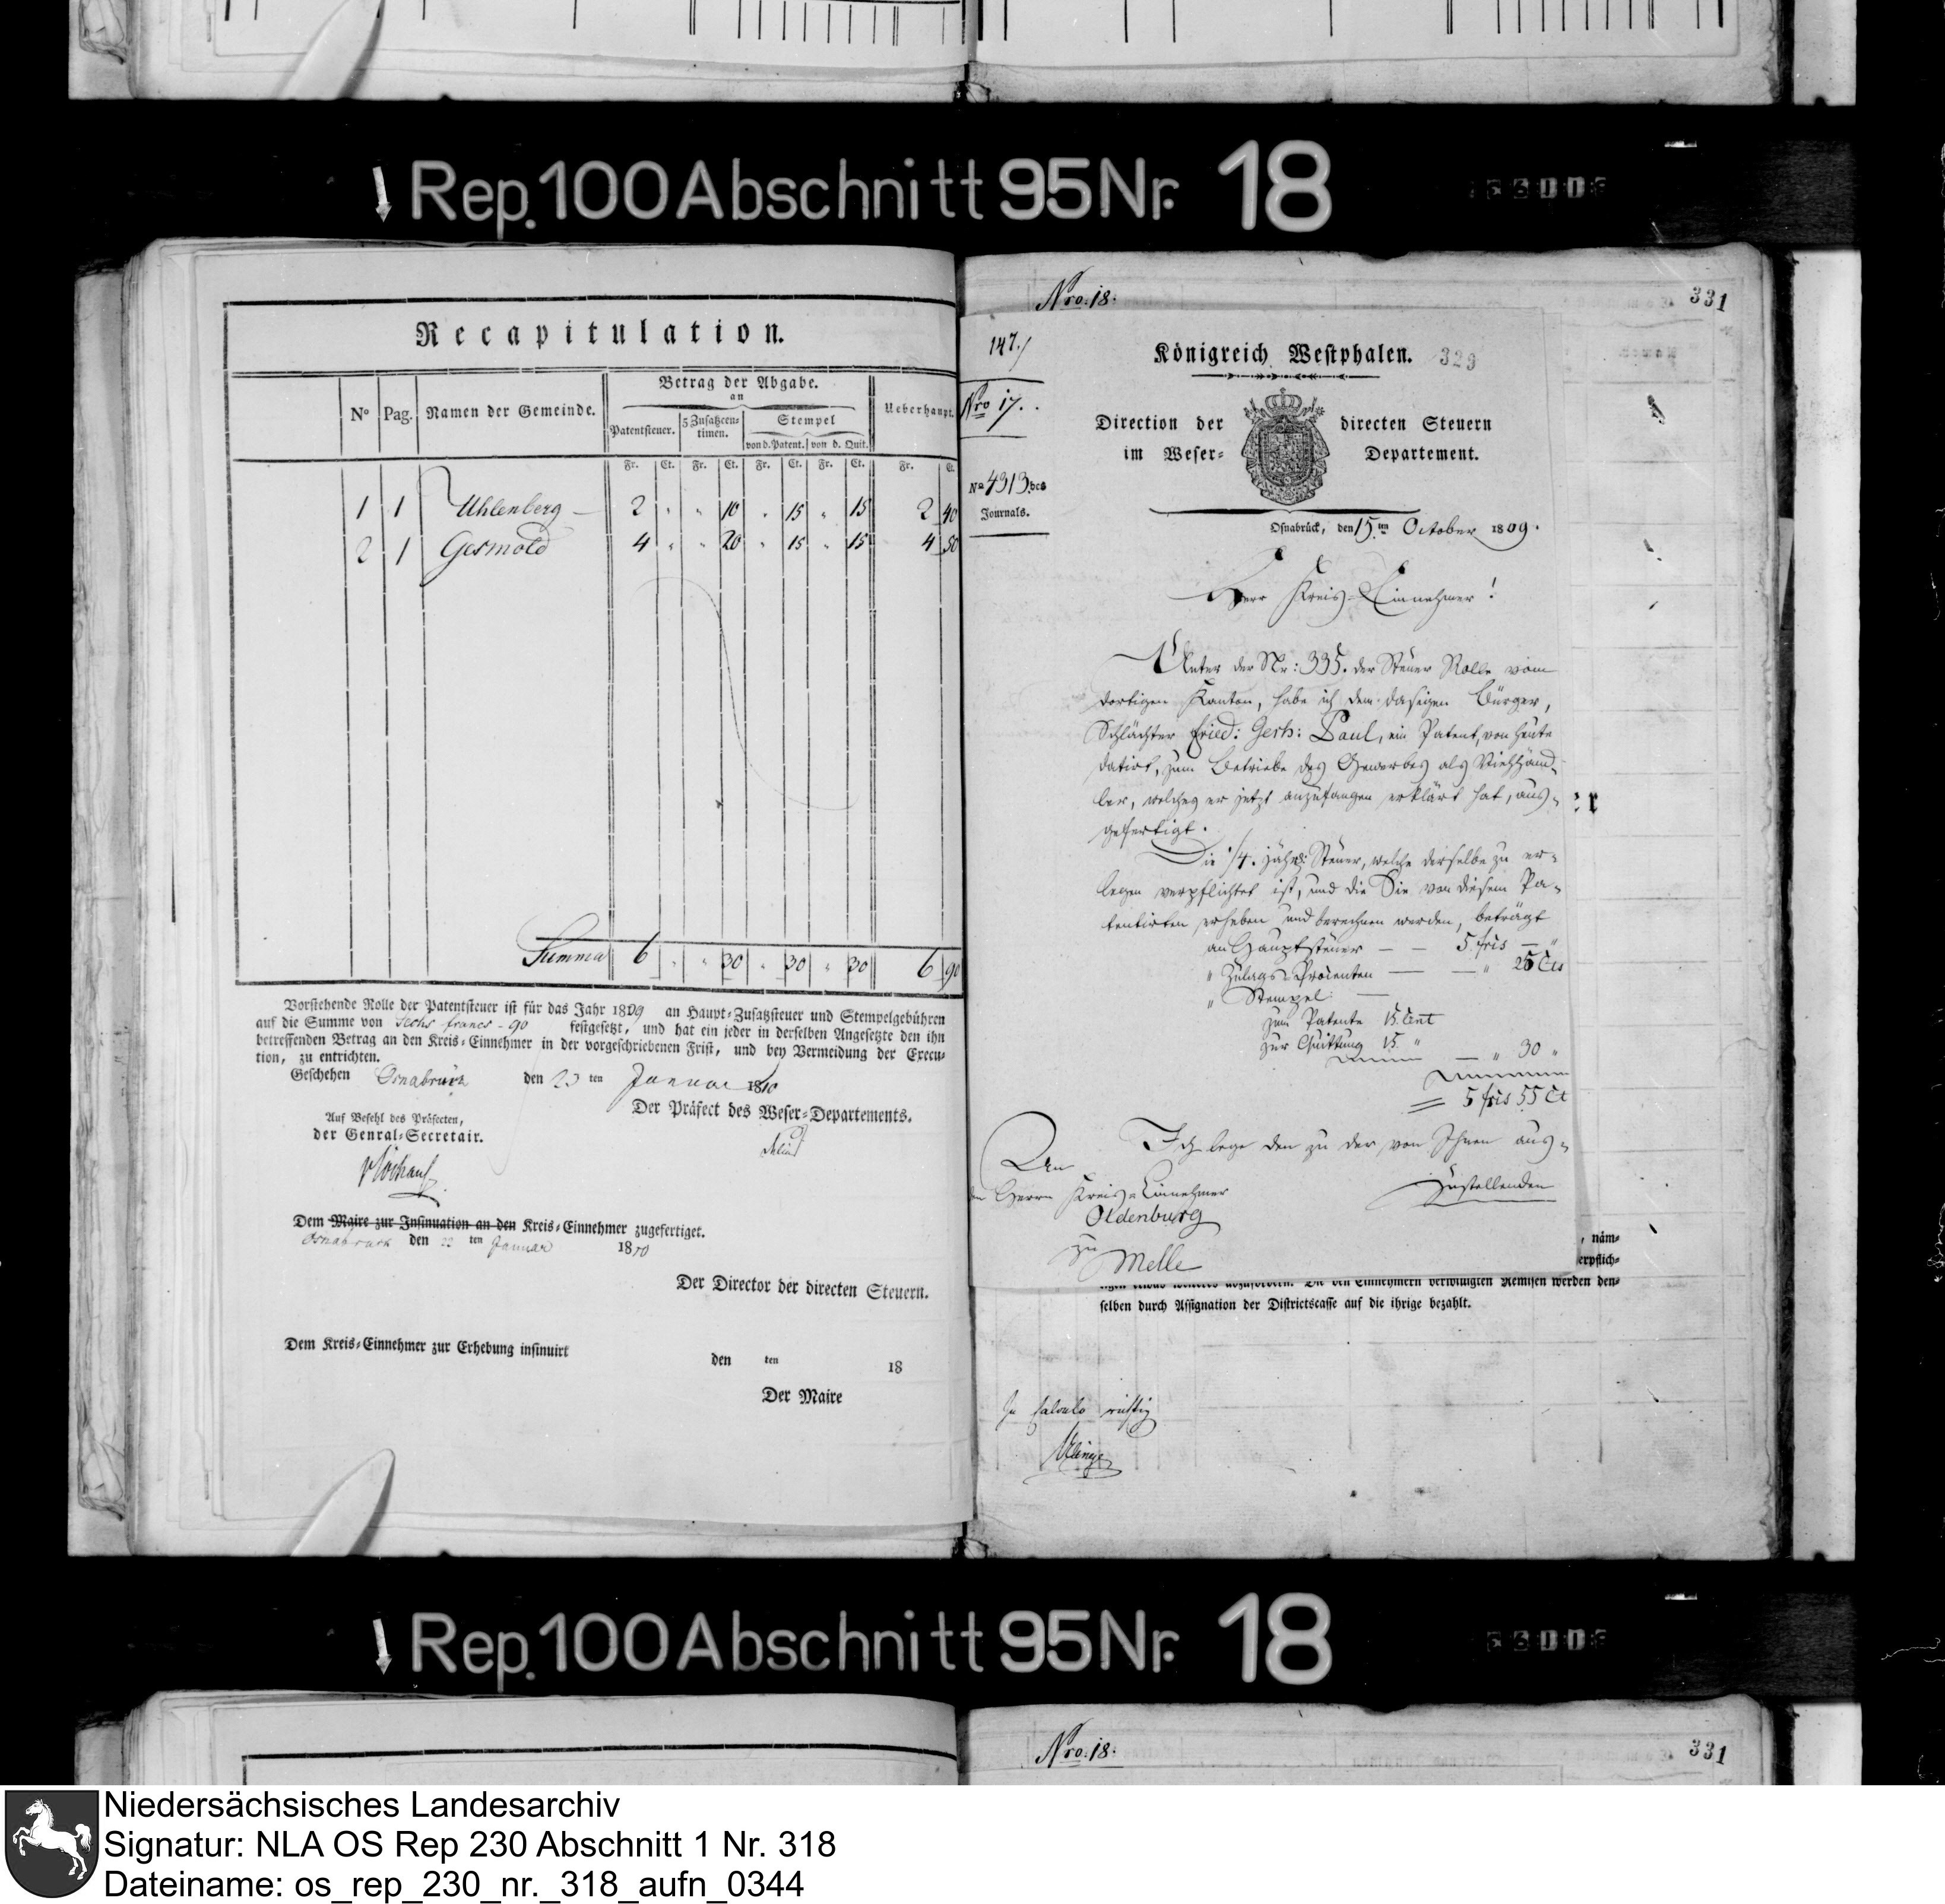 Rep. 100 Abschnitt 95 Nr. 18
Recapitulation.
Nº Pag. Namen der Gemeinde. Betrag der Abgabe. Ueberhaupt.
an
Patentsteuer. 5 Zusatzcen- Stempel
timen. von d. Patent. von d. Quit.
Fr. Ct. Fr. Ct. Fr. Ct. Fr. Ct. Fr. Ct.
1 1 Uhlenberg 2 " " 10 " 15 " 15 2 40
2 1 Gesmold 4 " " 20 " 15 " 15 4 50
Summa 6 " " 30 " 30 " 30 6 90
Vorstehende Rolle der Patentsteuer ist für das Jahr 1809 an Haupt-Zusatzsteuer und Stempelgebühren
auf die Summe von Sechs francs - 90 festgesetzt, und hat ein jeder in derselben Angesetzte den ihn
betreffenden Betrag an den Kreis-Einnehmer in der vorgeschriebenen Frist, und bey Vermeidung der Execu-
tion, zu entrichten.
Geschehen Osnabrück den 23 ten Januar 1810
Der Präfect des Weser-Departements.
Auf Befehl des Präfecten,
der Genral-Secretair.
Dem Maire zur Insinuation an den Kreis-Einnehmer zugefertiget.
Osnabrück den 22 ten Januar 1810
Der Director der directen Steuern.
Dem Kreis-Einnehmer zur Erhebung insinuirt
den ten 18
Der Maire
Nro. 18.
331
147.
Königreich Westphalen. 329
Nro 17.
Direction der directen Steuern
im Weser- Departement.
Nº 4313. des
Journals.
Osnabrück, den 15ten October 1809.
Herr Kreis-Einnehmer!
Unter der Nr: 335. der Steuer Rolle vom
dortigen Kanton, habe ich dem dasigen Bürger,
Schlächter Fried: Gerh: Paul, ein Patent, von heute
datirt, zum Betriebe des Gewerbes als Viehhänd-
ler, welches er jetzt anzufangen erklärt hat, aus-
gefertigt.
Die 1/4. jährl: Steuer, welche derselbe zu er-
legen verpflichtet ist, und die Sie von diesem Pa-
tentirten erheben und berechnen werden, beträgt
an Hauptsteuer — — 5. frcs — "
" Zulags-Procenten — — " 25 Cts
" Stempel —
zum Patente 15. Cent
zur Quittung 15. "
— " 30 "
= 5 frcs 55 Ct
Ich lege den zu der von Ihnen aus-
zustellenden
An
den Herrn Kreis-Einnehmer
Oldenburg
zu Melle
er
, näm-
erpflich-
igen etwas weiteres abzufordern. Die den Einnehmern bewilligten Remisen werden den-
selben durch Assignation der Districtscasse auf die ihrige bezahlt.
In Calculo richtig
Rep. 100 Abschnitt 95 Nr. 18
Nro. 18.
331
Niedersächsisches Landesarchiv
Signatur: NLA OS Rep 230 Abschnitt 1 Nr. 318
Dateiname: os_rep_230_nr._318_aufn_0344